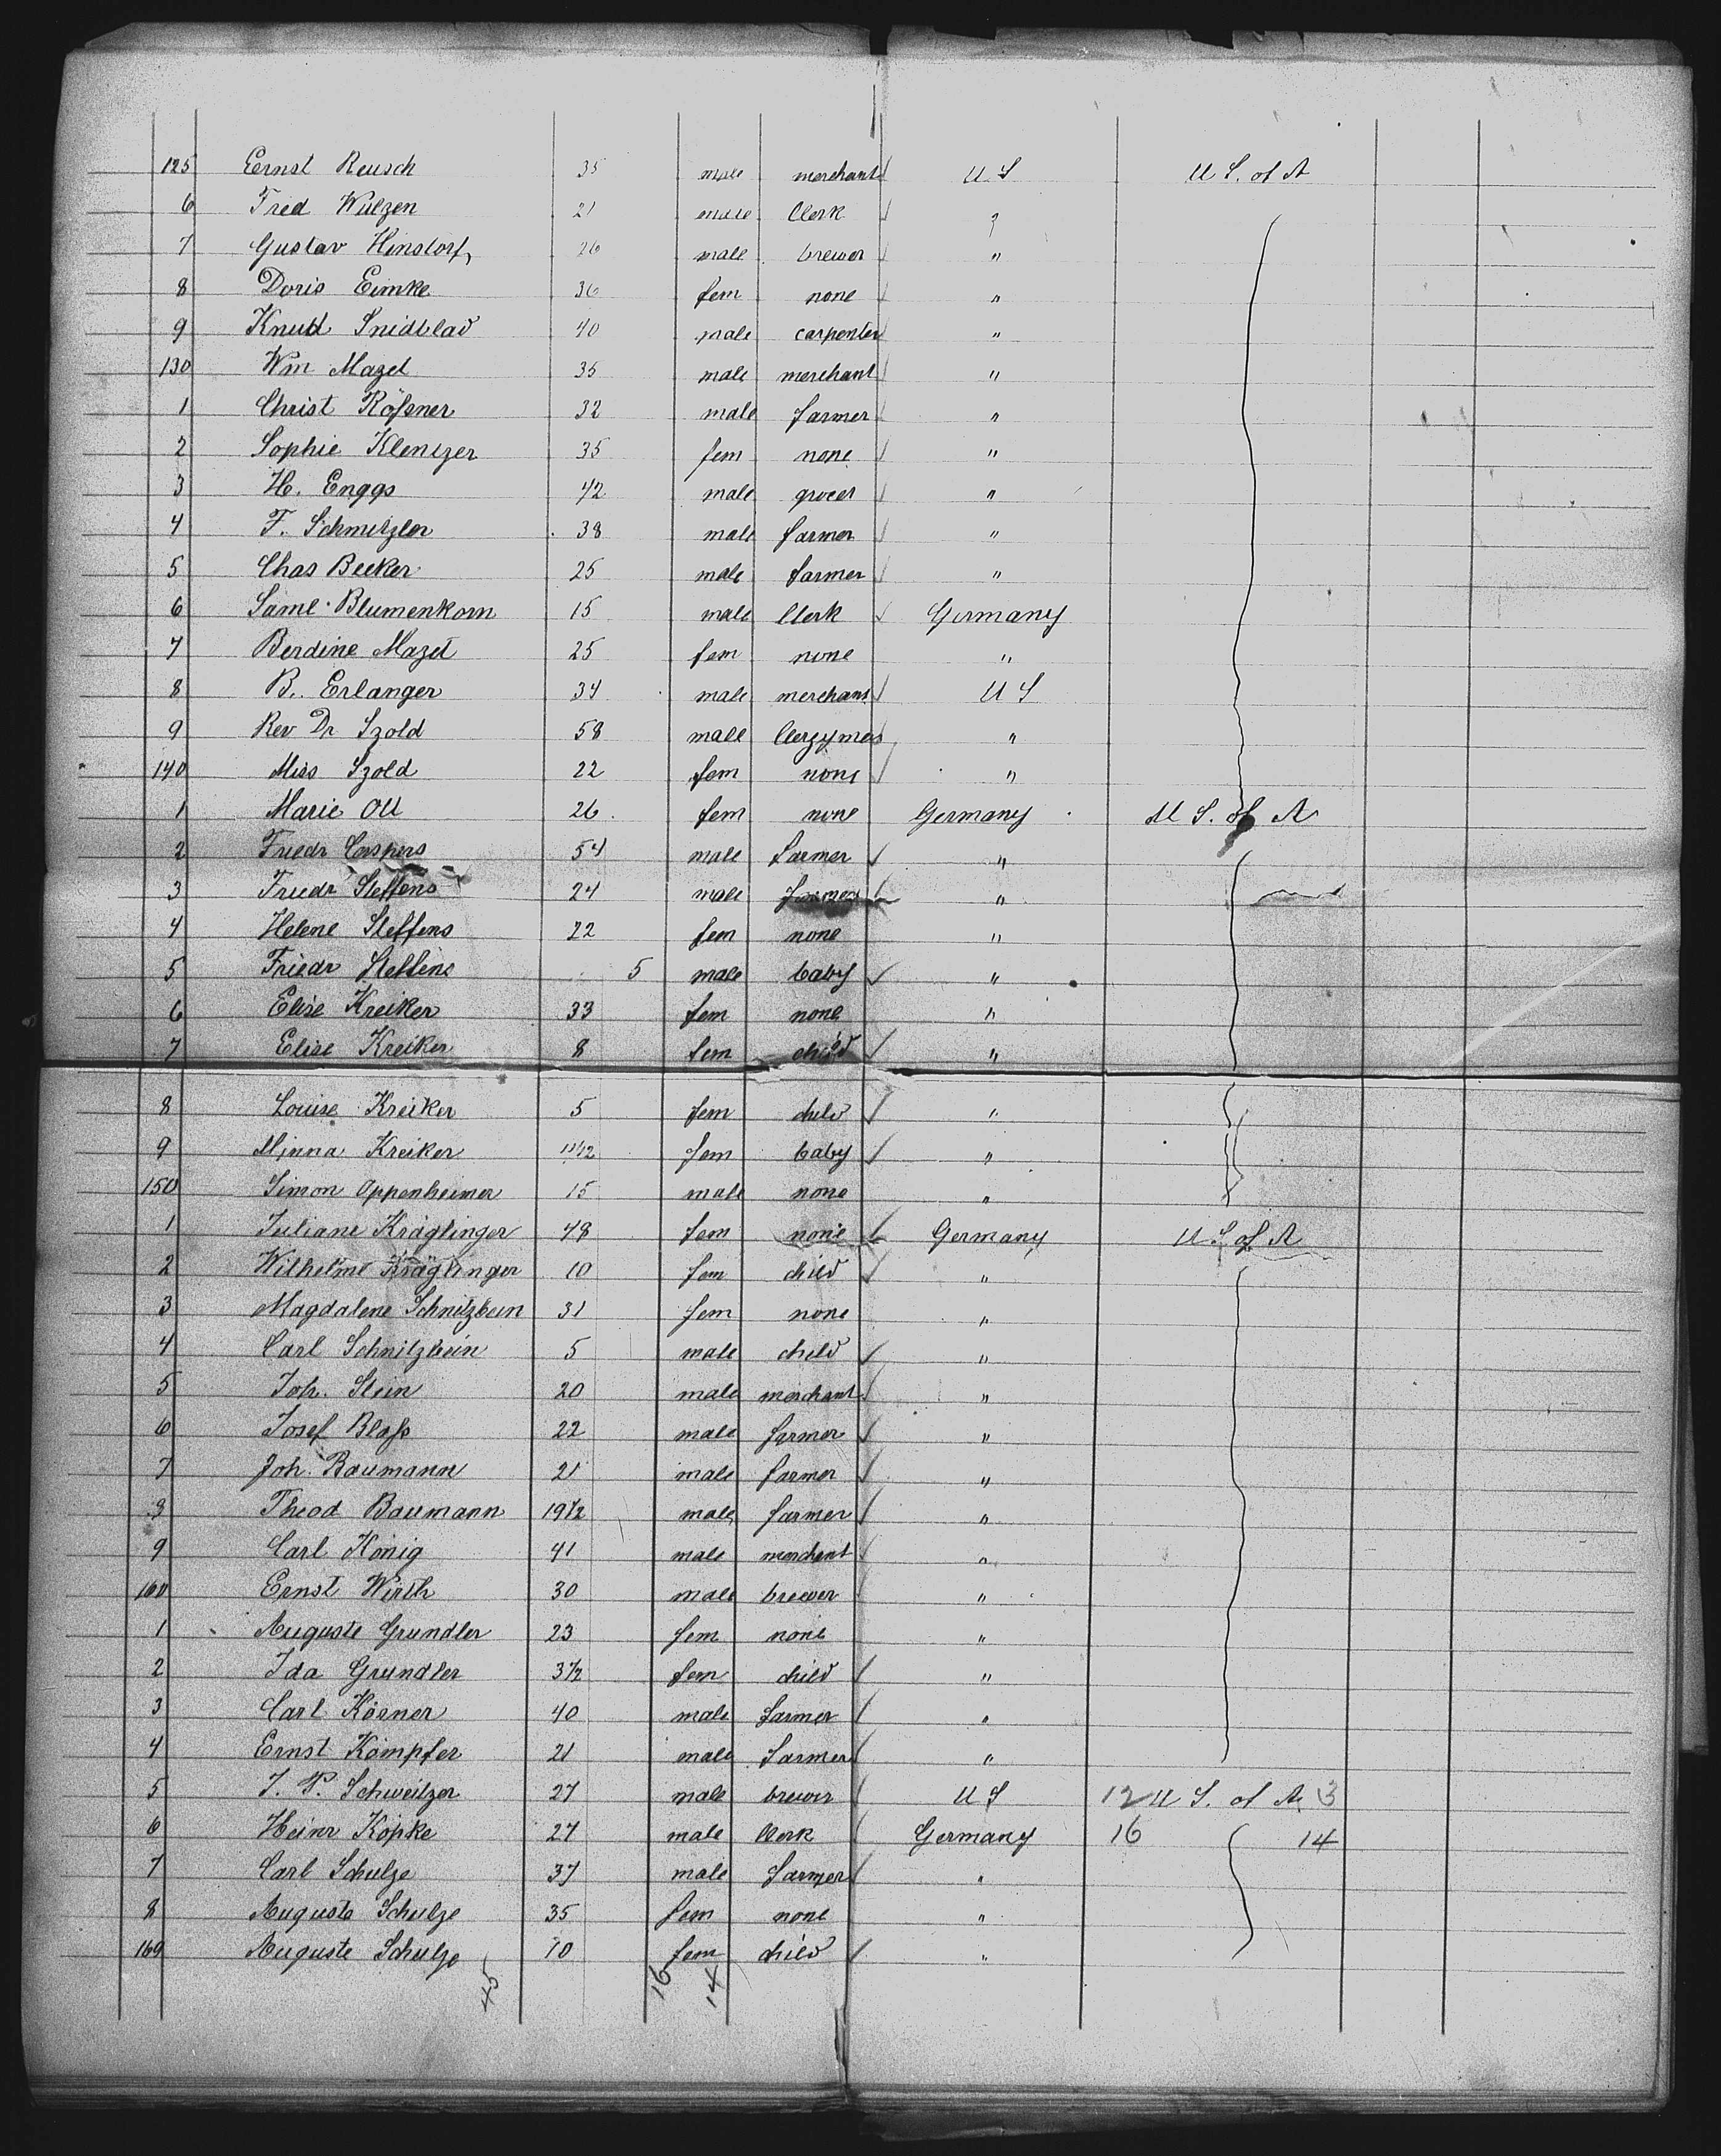 125 Ernst Reusch 35 male merchant U S U S. of A
6 Fred Wulzen 21 male Clerk "
7 Gustav Hinstorf 26 male brewer "
8 Doris Eimke 36 fem none "
9 Knud Snidblad 40 male carpenter "
130 Wm Mazet 35 male merchant "
1 Christ Rößner 32 male farmer "
2 Sophie Klentzer 35 fem none "
3 H. Enggs 42 male grocer "
4 F. Schmitzler 38 male farmer "
5 Chas Becker 25 male farmer "
6 Saml. Blumenkorn 15 male Clerk Germany
7 Berdine Mazet 25 fem none "
8 B. Erlanger 34 male merchant U S
9 Rev Dr Szold 58 male Clergyman "
140 Miss Szold 22 fem none "
1 Marie Ott 26 fem none Germany U S. of A
2 Friedr Caspers 54 male farmer "
3 Friedr Steffens 24 male farmer "
4 Helene Steffens 22 fem none "
5 Friedr Steffens 5 male baby "
6 Elise Kreiker 33 fem none "
7 Elise Kreiker 8 fem child "
8 Louise Kreiker 5 fem child "
9 Minna Kreiker 11/12 fem baby "
150 Simon Oppenheimer 15 male none "
1 Juliane Kräglinger 48 fem none Germany U S. of A
2 Wilhelme Kräglinger 10 fem child "
3 Magdalene Schnitzbein 31 fem none "
4 Carl Schnitzbein 5 male child "
5 Joh. Stein 20 male merchant "
6 Josef Blaß 22 male farmer "
7 Joh. Baumann 21 male farmer "
8 Theod Baumann 19 1/2 male farmer "
9 Carl König 41 male merchant "
160 Ernst Wirth 30 male brewer "
1 Auguste Grundler 23 fem none "
2 Ida Grundler 3 1/2 fem child "
3 Carl Körner 40 male farmer "
4 Ernst Kämpfer 21 male farmer "
5 J. P. Schweitzer 27 male brewer U S 12 U S. of A 3
6 Heinr Köpke 27 male Clerk Germany 16 14
7 Carl Schulze 37 male farmer "
8 Auguste Schulze 35 fem none "
169 Auguste Schulze 10 fem child "
45 16 14